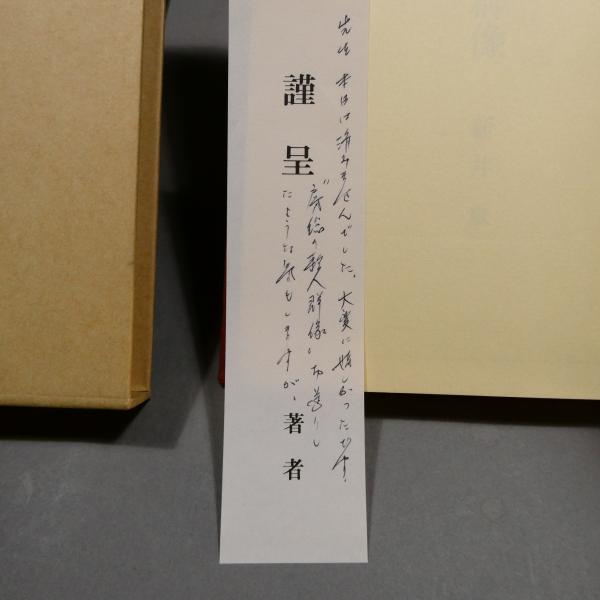 先生 本日は済みませんでした。大変に嬉しかったです。
"房総の歌人群像"お送りし
たような気もしますが、
謹呈
著者